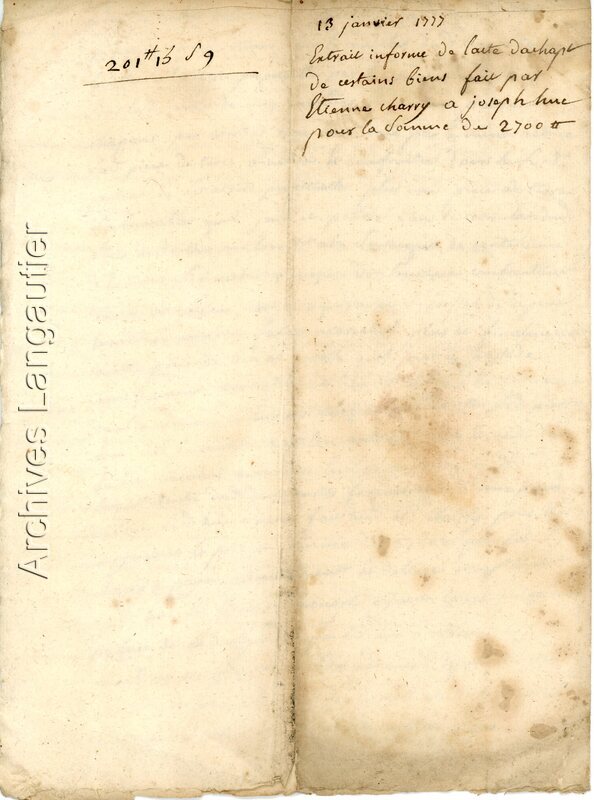 201ᵗᵗ 13 ſ 9
13 janvier 1777
Extrait informe de lacte dachapt
de certains biens fait par
Etienne charry a joseph huc
pour la somme de 2700ᵗᵗ
Archives Langautier